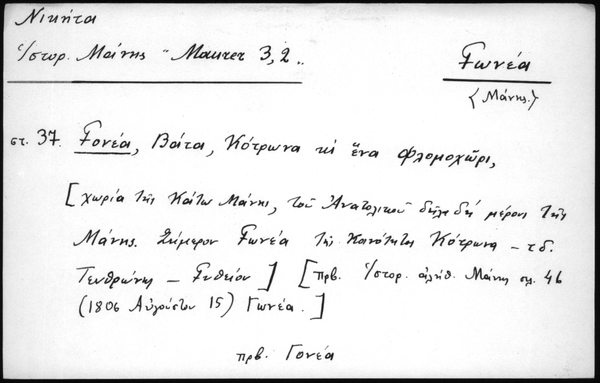 Νικήτα
Ἱστορ. Μάνης "Maurer 3,2..
Γωνέα
<Μάνης.>
στ. 37. Γονέα, Βάτα, Κότρωνα κι ἕνα Φλομοχῶρι,
[χωρία τῆς Κάτω Μάνης, τοῦ Ἀνατολικοῦ δηλαδή μέρους τῆς
Μάνης. Σήμερον Γωνέα τῆς Κοινότητος Κότρωνα – τ.δ.
Τευθρώνης – Γυθείου] [πρβ. Ἱστορ. ἀλήθ. Μάνης σελ. 46
(1806 Αὐγούστου 15) Γωνέα.]
πρβ. Γονέα